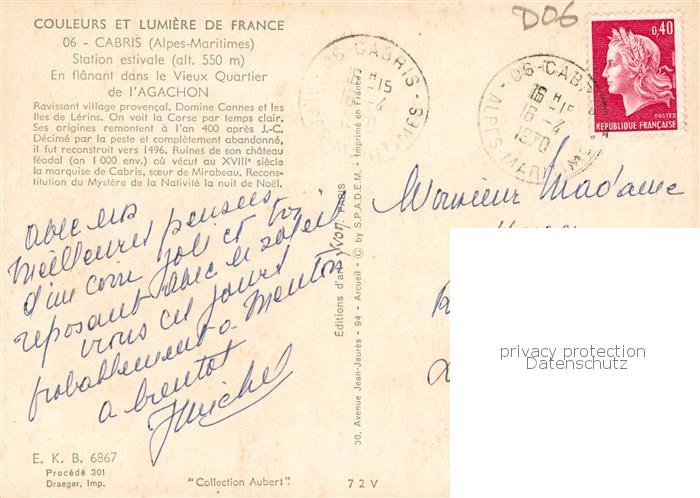 COULEURS ET LUMIÈRE DE FRANCE
06 - CABRIS (Alpes-Maritimes)
Station estivale (alt. 550 m)
En flânant dans le Vieux Quartier
de l'AGACHON
Ravissant village provençal. Domine Cannes et les
Iles de Lérins. On voit la Corse par temps clair.
Ses origines remontent à l'an 400 après J.-C.
Décimé par la peste et complètement abandonné,
il fut reconstruit vers 1496. Ruines de son château
féodal (an 1 000 env.) où vécut au XVIIIᵉ siècle
la marquise de Cabris, sœur de Mirabeau. Recons-
titution du Mystère de la Nativité la nuit de Noël.
avec nos
meilleures pensées
d'un coin joli et
reposant avec le soleil
vous ces jours
probablement a Menton
a bientot
Michel
E. K. B. 6867
Procédé 301
Draeger, Imp.
"Collection Aubert"
72 V
Editions d'art Yvon, PARIS
30, Avenue Jean-Jaurès - 94 - Arcueil - © by S.P.A.D.E.M. - Imprimé en France
06-CABRIS
ALPES-MARITIMES
D06
06-CABRIS
16 H 15
16 - 4
1970
ALPES-MARITIMES
0,40
POSTES
REPUBLIQUE FRANÇAISE
Monsieur Madame
privacy protection
Datenschutz